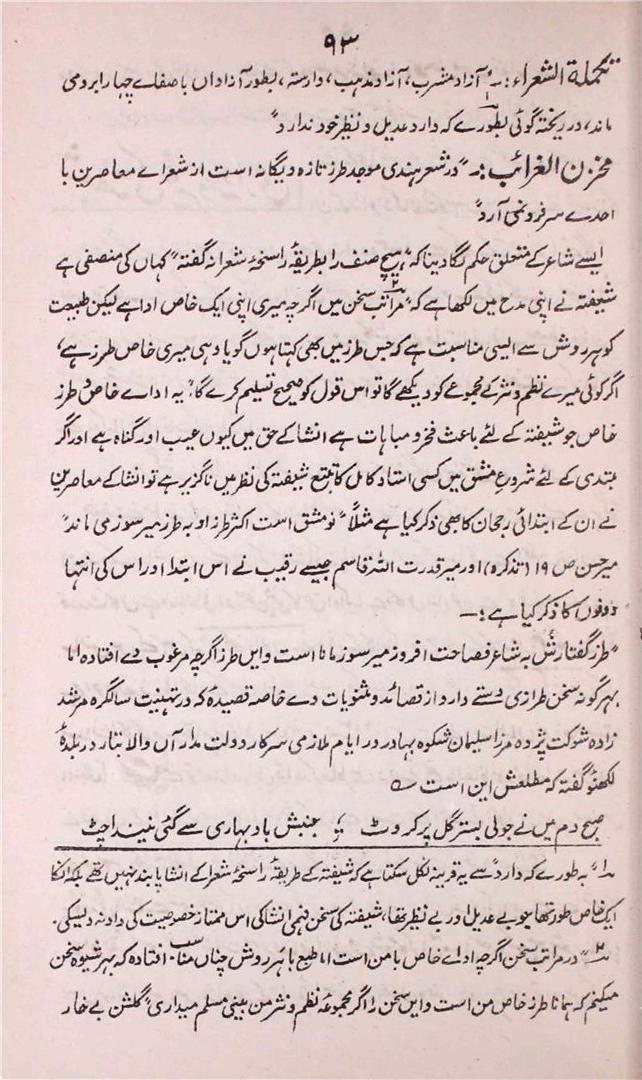 ۹۳
تکملة الشعراء:۔ "آزاد مشرب، آزاد مذہب، وارستہ، بطور آزاداں باصفلے چہار ابرو می
ماند، در ریختہ گوئی بطورے کہ دارد عدیل و نظیر خود ندارد"
مخزن الغرائب:۔ "در شعر ہندی موجد طرز تازہ و یگانہ است از شعراے معاصرین با
احدے سر فرو نمی آرد"
ایسے شاعر کے متعلق حکم لگا دینا کہ "ہیچ صنف را بطریقۂ راسخۂ شعرا نہ گفتہ" کہاں کی منصفی ہے
شیفتہ نے اپنی مدح میں لکھا ہے کہ "مراتب سخن میں اگرچہ میری اپنی ایک خاص ادا ہے لیکن طبیعت
کو ہر روش سے ایسی مناسبت ہے کہ جس طرز میں بھی کہتا ہوں گویا وہی میری خاص طرز ہے،
اگر کوئی میرے نظم و نثر کے مجموعے کو دیکھے گا تو اس قول کو صحیح تسلیم کرے گا" یہ اداے خاص و طرز
خاص جو شیفتہ کے لئے باعث فخر و مباہات ہے انشا کے حق میں کیوں عیب اور گناہ ہے اور اگر
مبتدی کے لئے شروع مشق میں کسی استاد کامل کا تتبع شیفتہ کی نظر میں ناگزیر ہے تو انشا کے معاصرین
نے ان کے ابتدائی رجحان کا بھی ذکر کیا ہے مثلاً "نو مشق است اکثر طرز او بہ طرز میر سوز می ماند"
میر حسن ص ۱۹ (تذکرہ) اور میر قدرت اللہ قاسم جیسے رقیب نے اس ابتدا اور اس کی انتہا
دونوں کا ذکر کیا ہے:۔
"طرز گفتارش بہ شاعر فصاحت افروز میر سوز مانا است و ایں طرز اگرچہ مرغوب دے افتادہ اما
بہر گونہ سخن طرازی دستے دارد از قصائد و مثنویات دے خاصہ قصیدۂ کہ در تہنیت سالگرہ مرشد
زادہ شوکت پژدہ مرزا سلیمان شکوہ بہادر در ایام ملازمی سرکار دولت مدار آں والا تبار در بلدۂ
لکھنؤ گفتہ کہ مطلعش این است ؎
صبح دم میں نے جو لی بستر گل پر کروٹ ؛ جنبش باد بہاری سے گئی نیند اچٹ
۱؎ "بہ طورے کہ دارد" سے یہ قرینہ نکل سکتا ہے کہ شیفتہ کے طریقۂ راسخۂ شعرا کے انشا پابند نہیں تھے بلکہ انکا
ایک خاص طور تھا جو بے عدیل اور بے نظیر تھا، شیفتہ کی سخن فہمی انشا کی اس ممتاز خصوصیت کی داد نہ دے سکی۔
۲؎ "در مراتب سخن اگرچہ اداے خاص با من است اما طبع با ہر روش چناں مناسب افتادہ کہ بہر شیوہ سخن
میکنم کہ ہمانا طرز خاص من است و ایں سخن را اگر مجموعہ نظم و نثر من بینی مسلم میداری" گلشن بے خار